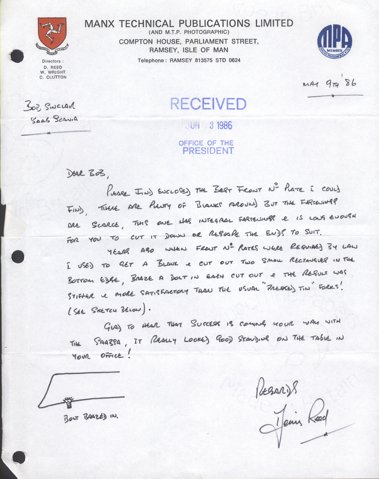 MANX TECHNICAL PUBLICATIONS LIMITED
(AND M.T.P. PHOTOGRAPHIC)
COMPTON HOUSE, PARLIAMENT STREET,
RAMSEY, ISLE OF MAN
Telephone: RAMSEY 813575 STD 0624
Directors:
D. REED
W. WRIGHT
C. CLUTTON
MPA
MEMBER
MAY 9TH '86
BOB SINCLAIR
SAAB SCANIA
RECEIVED
JUN 3 1986
OFFICE OF THE
PRESIDENT
DEAR BOB,
PLEASE FIND ENCLOSED THE BEST FRONT No PLATE I COULD
FIND, THERE ARE PLENTY OF BLANKS AROUND BUT THE FASTENINGS
ARE SCARCE, THIS ONE HAS INTEGRAL FASTENINGS & IS LONG ENOUGH
FOR YOU TO CUT IT DOWN OR RESHAPE THE ENDS TO SUIT.
YEARS AGO WHEN FRONT No PLATES WERE REQUIRED BY LAW
I USED TO GET A BLANK & CUT OUT TWO SMALL RECTANGLES IN THE
BOTTOM EDGE, BRAZE A BOLT IN EACH CUT OUT & THE RESULT WAS
STIFFER & MORE SATISFACTORY THAN THE USUAL "PRESSED TIN" FORKS!
(SEE SKETCH BELOW).
GLAD TO HEAR THAT SUCCESS IS COMING YOUR WAY WITH
THE, IT REALLY LOOKED GOOD STANDING ON THE TABLE IN
YOUR OFFICE!
BOLT BRAZED IN.
REGARDS
Denis Reed